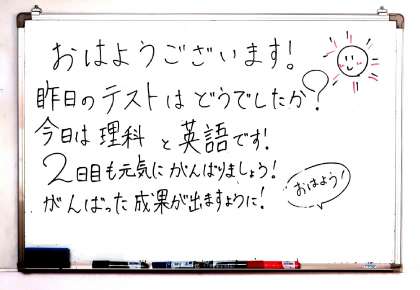 おはようございます!
昨日のテストはどうでしたか?
今日は理科と英語です!
2日目も元気にがんばりましょう!
がんばった成果が出ますように!
おはよう!